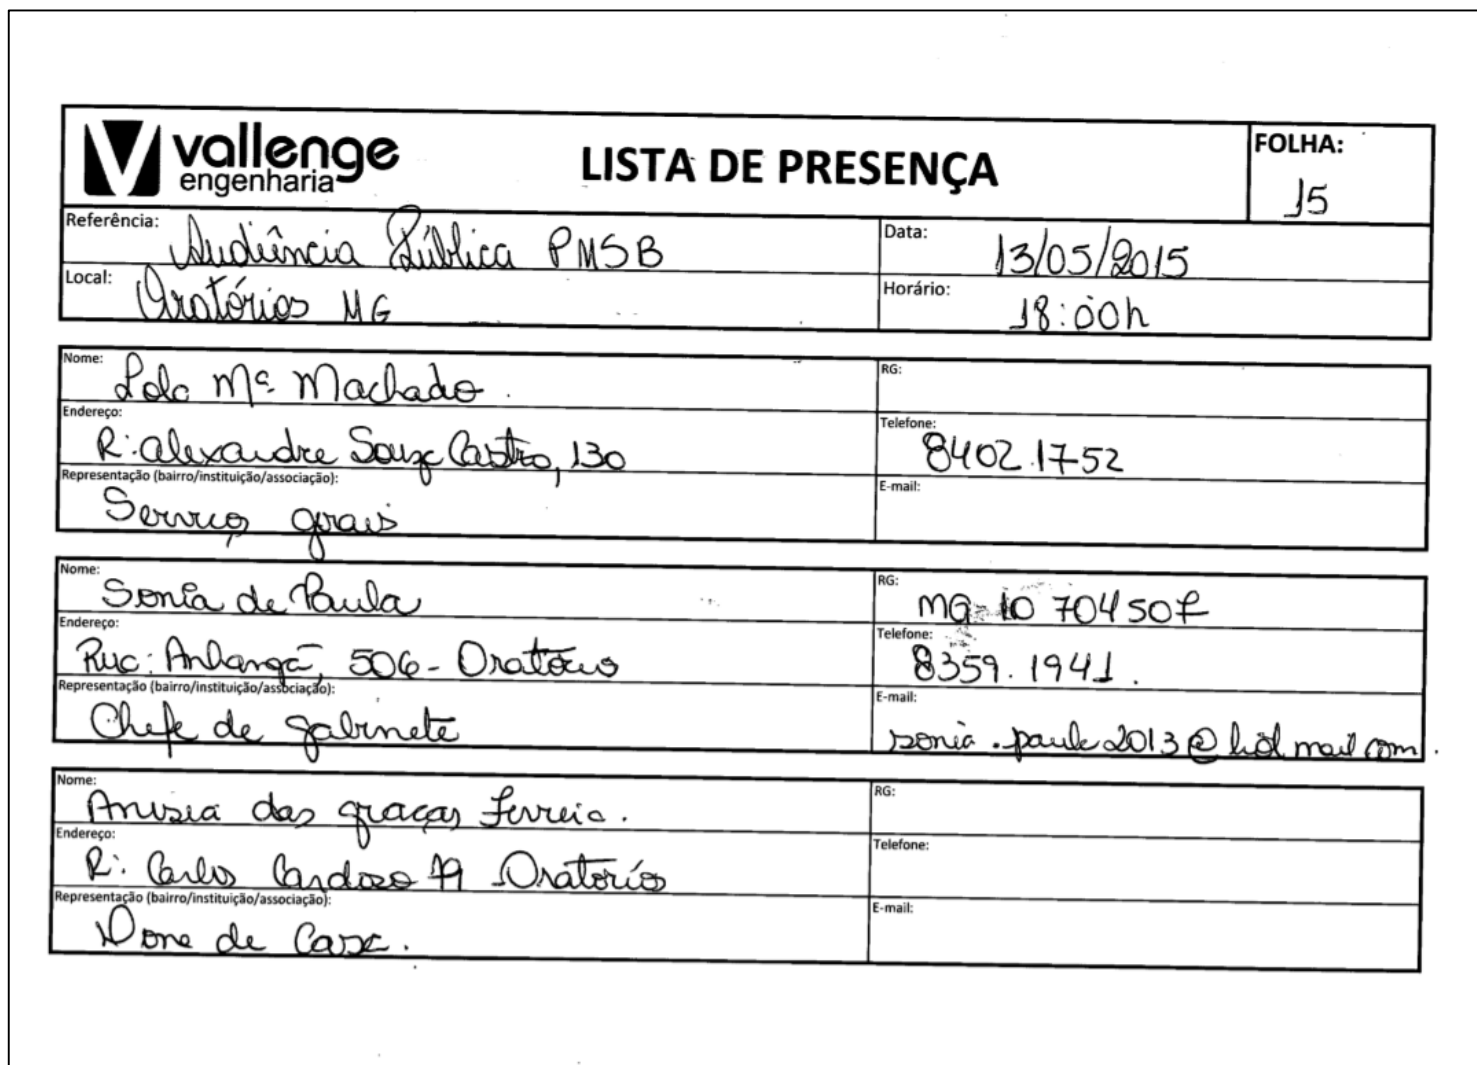 vallenge
engenharia
LISTA DE PRESENÇA
FOLHA:
15
Referência: Audiência Pública PMSB
Data: 13/05/2015
Local: Oratórios MG
Horário: 18:00h
Nome: Lola Mª Machado.
RG:
Endereço: R: Alexandre Souza Castro, 130
Telefone: 8402.1752
Representação (bairro/instituição/associação): Serviços gerais
E-mail:
Nome: Sonia de Paula
RG: MG-10 704 507
Endereço: Rua: Anhangá, 506 - Oratórios
Telefone: 8359.1941.
Representação (bairro/instituição/associação): Chefe de gabinete
E-mail: sonia.paula2013@hotmail.com.
Nome: Anisia das graças Ferreia.
RG:
Endereço: R: Carlos Cardoso Oratório
Telefone:
Representação (bairro/instituição/associação): Dona de Casa.
E-mail: